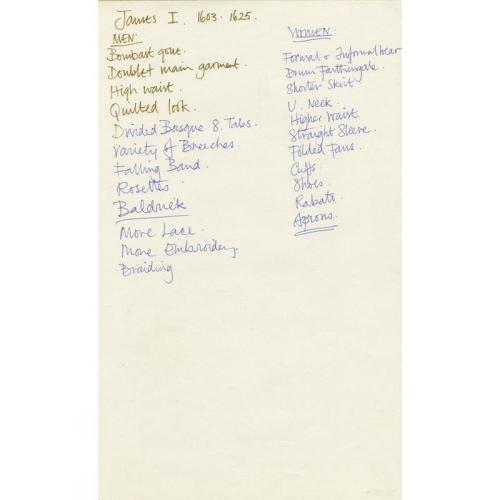 James I. 1603 - 1625.
MEN
Bombast gone.
Doublet main garment.
High waist.
Quilted look.
Divided Basque 8. Tabs.
Variety of Breeches.
Falling Band.
Rosettes
Baldrick
More Lace.
More Embroidery.
Braiding
WOMEN
Formal & Informal wear
Drum Farthingale.
Shorter Skirt
U. Neck.
Higher Waist.
Straight Sleeve.
Folded Fans.
Cuffs.
Shoes.
Rabato.
Aprons.